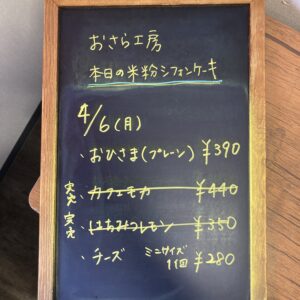 おさら工房
本日の米粉シフォンケーキ
4/6(月)
・おひさま(プレーン) ¥390
完売 ・カフェモカ ¥440
完売 ・はちみつレモン ¥350
・チーズ ミニサイズ 1個 ¥280